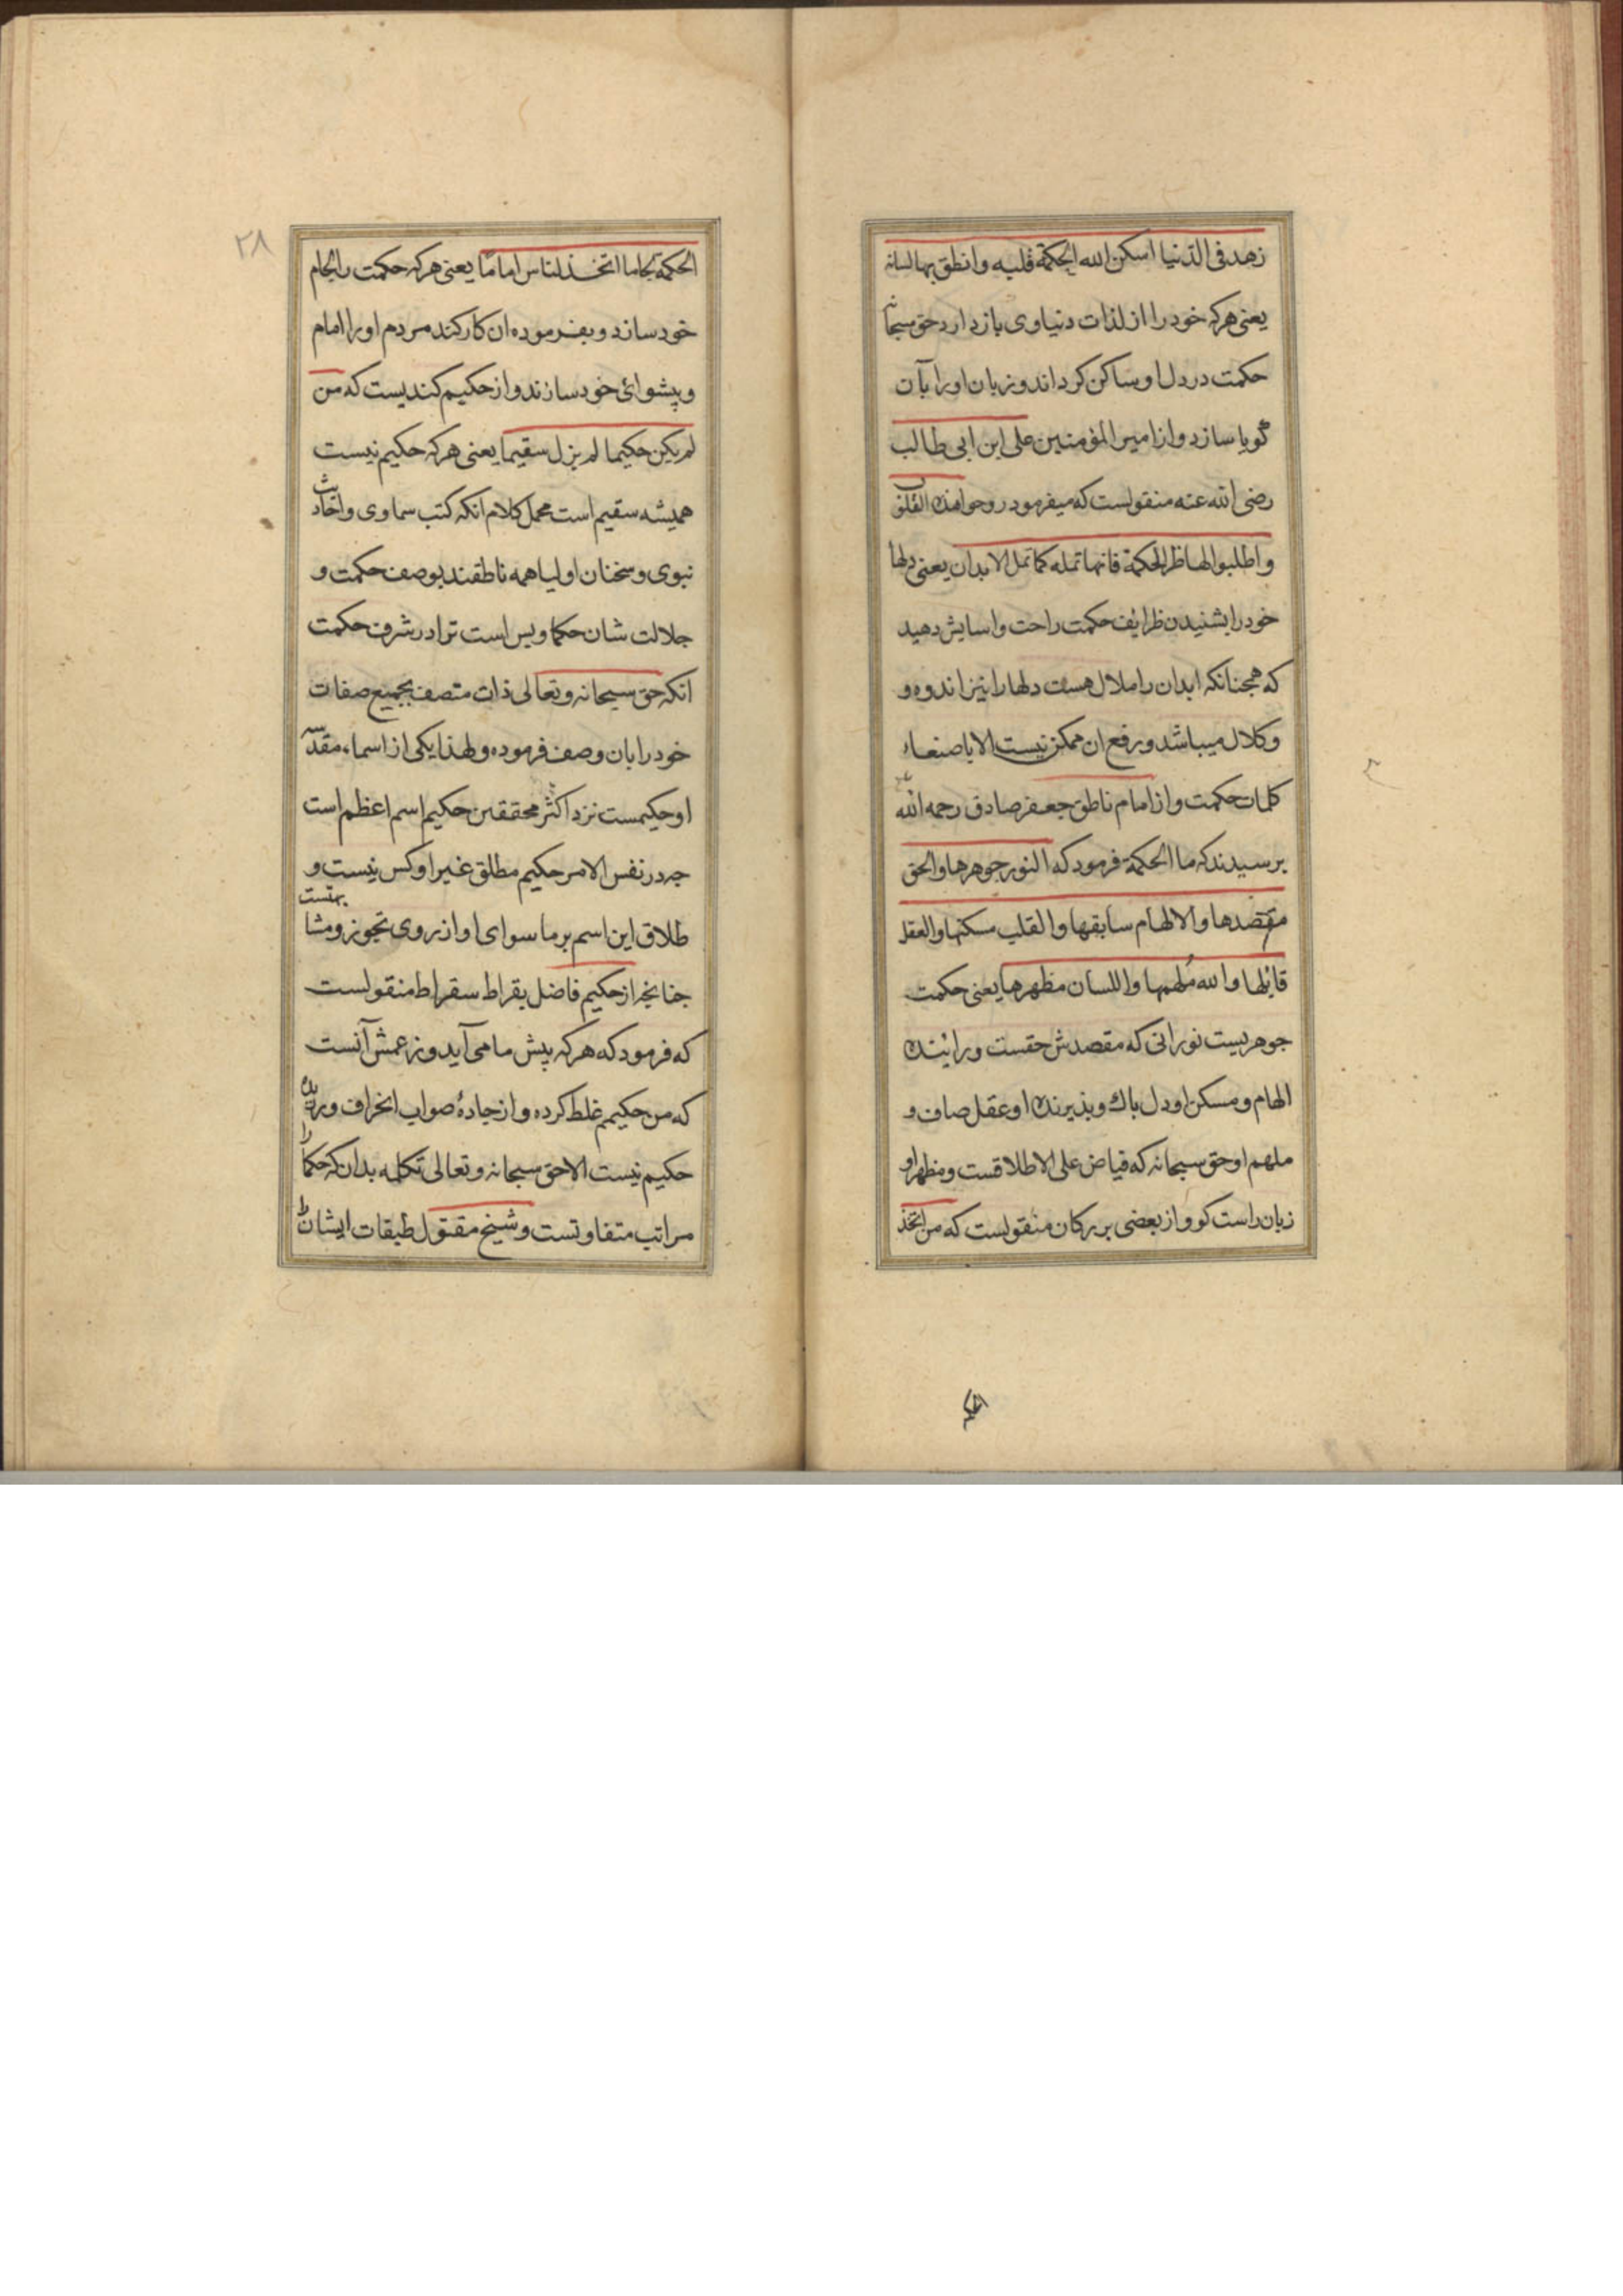 زهد فی الدّنیا اسکن الله الحکمة قلبه وانطق بها لسانه
یعنی هرکه خود را از لذات دنیاوی بازدارد حق سبحانه
حکمت در دل او ساکن کرداند و زبان او را بآن
گویا سازد و از امیر المؤمنین علی ابن ابی طالب
رضی الله عنه منقولست که میفرمود روحوا هذه القلوب
واطلبوا لها ظرائف الحکمة فانها تمله کما تمل الابدان یعنی دلها
خود را بشنیدن ظرایف حکمت راحت و اسایش دهید
که همجنانکه ابدان را ملال هست دلها را نیز اندوه و
و کلال میباشد و رفع ان ممکن نیست الا باصنعاء
کلمات حکمت و از امام ناطق جعفر صادق رحمه الله
برسیدند که ما الحکمة فرمود که النور جوهرها والحق
مقصدها والالهام سابقها والقلب مسکنها والعقل
قابلها والله مُلهمها واللسان مظهرها یعنی حکمت
جوهریست نورانی که مقصدش حقست و رایندۀ
الهام و مسکن او دل باك و بذیرندۀ او عقل صاف و
ملهم او حق سبحانه که فیاض علی الاطلاقست و مظهر او
زبان راست کو و از بعضی بررکان منقولست که من اتخذ
الحکمة
۲۸
الحکمة لجاما اتخذ للناس اماما یعنی هرکه حکمت را لجام
خود سازد و بفرموده ان کار کند مردم او را امام
و پیشوائ خود سازند و از حکیم کندیست که من
لم یکن حکیما لم یزل سقیما یعنی هرکه حکیم نیست
همیشه سقیم است مجمل کلام انکه کتب سماوی و احادیث
نبوی و سخنان اولیا همه ناطقند بوصف حکمت و
جلالت شان حکما و بس است ترا در شرف حکمت
انکه حق سبحانه و تعالی ذات متصف بجمیع صفات
خود را بان وصف فرموده و لهذا یکی از اسماء مقدّسه
او حکیمست نزد اکثر محققین حکیم اسم اعظم است
جه در نفس الامر حکیم مطلق غیر او کس نیست و
طلاق این اسم بر ما سوای او از روی تجوز و مشابهتست
جنانجه از حکیم فاضل بقراط سقراط منقولست
که فرمود که هرکه پیش ما می آید و زعمش آنست
که من حکیمم غلط کرده و از جادۀ صواب انحراف ورزیده
حکیم نیست الا حق سبحانه و تعالی تکلمه بدان که حکما را
مراتب متفاوتست و شیخ مقتول طبقات ایشان را